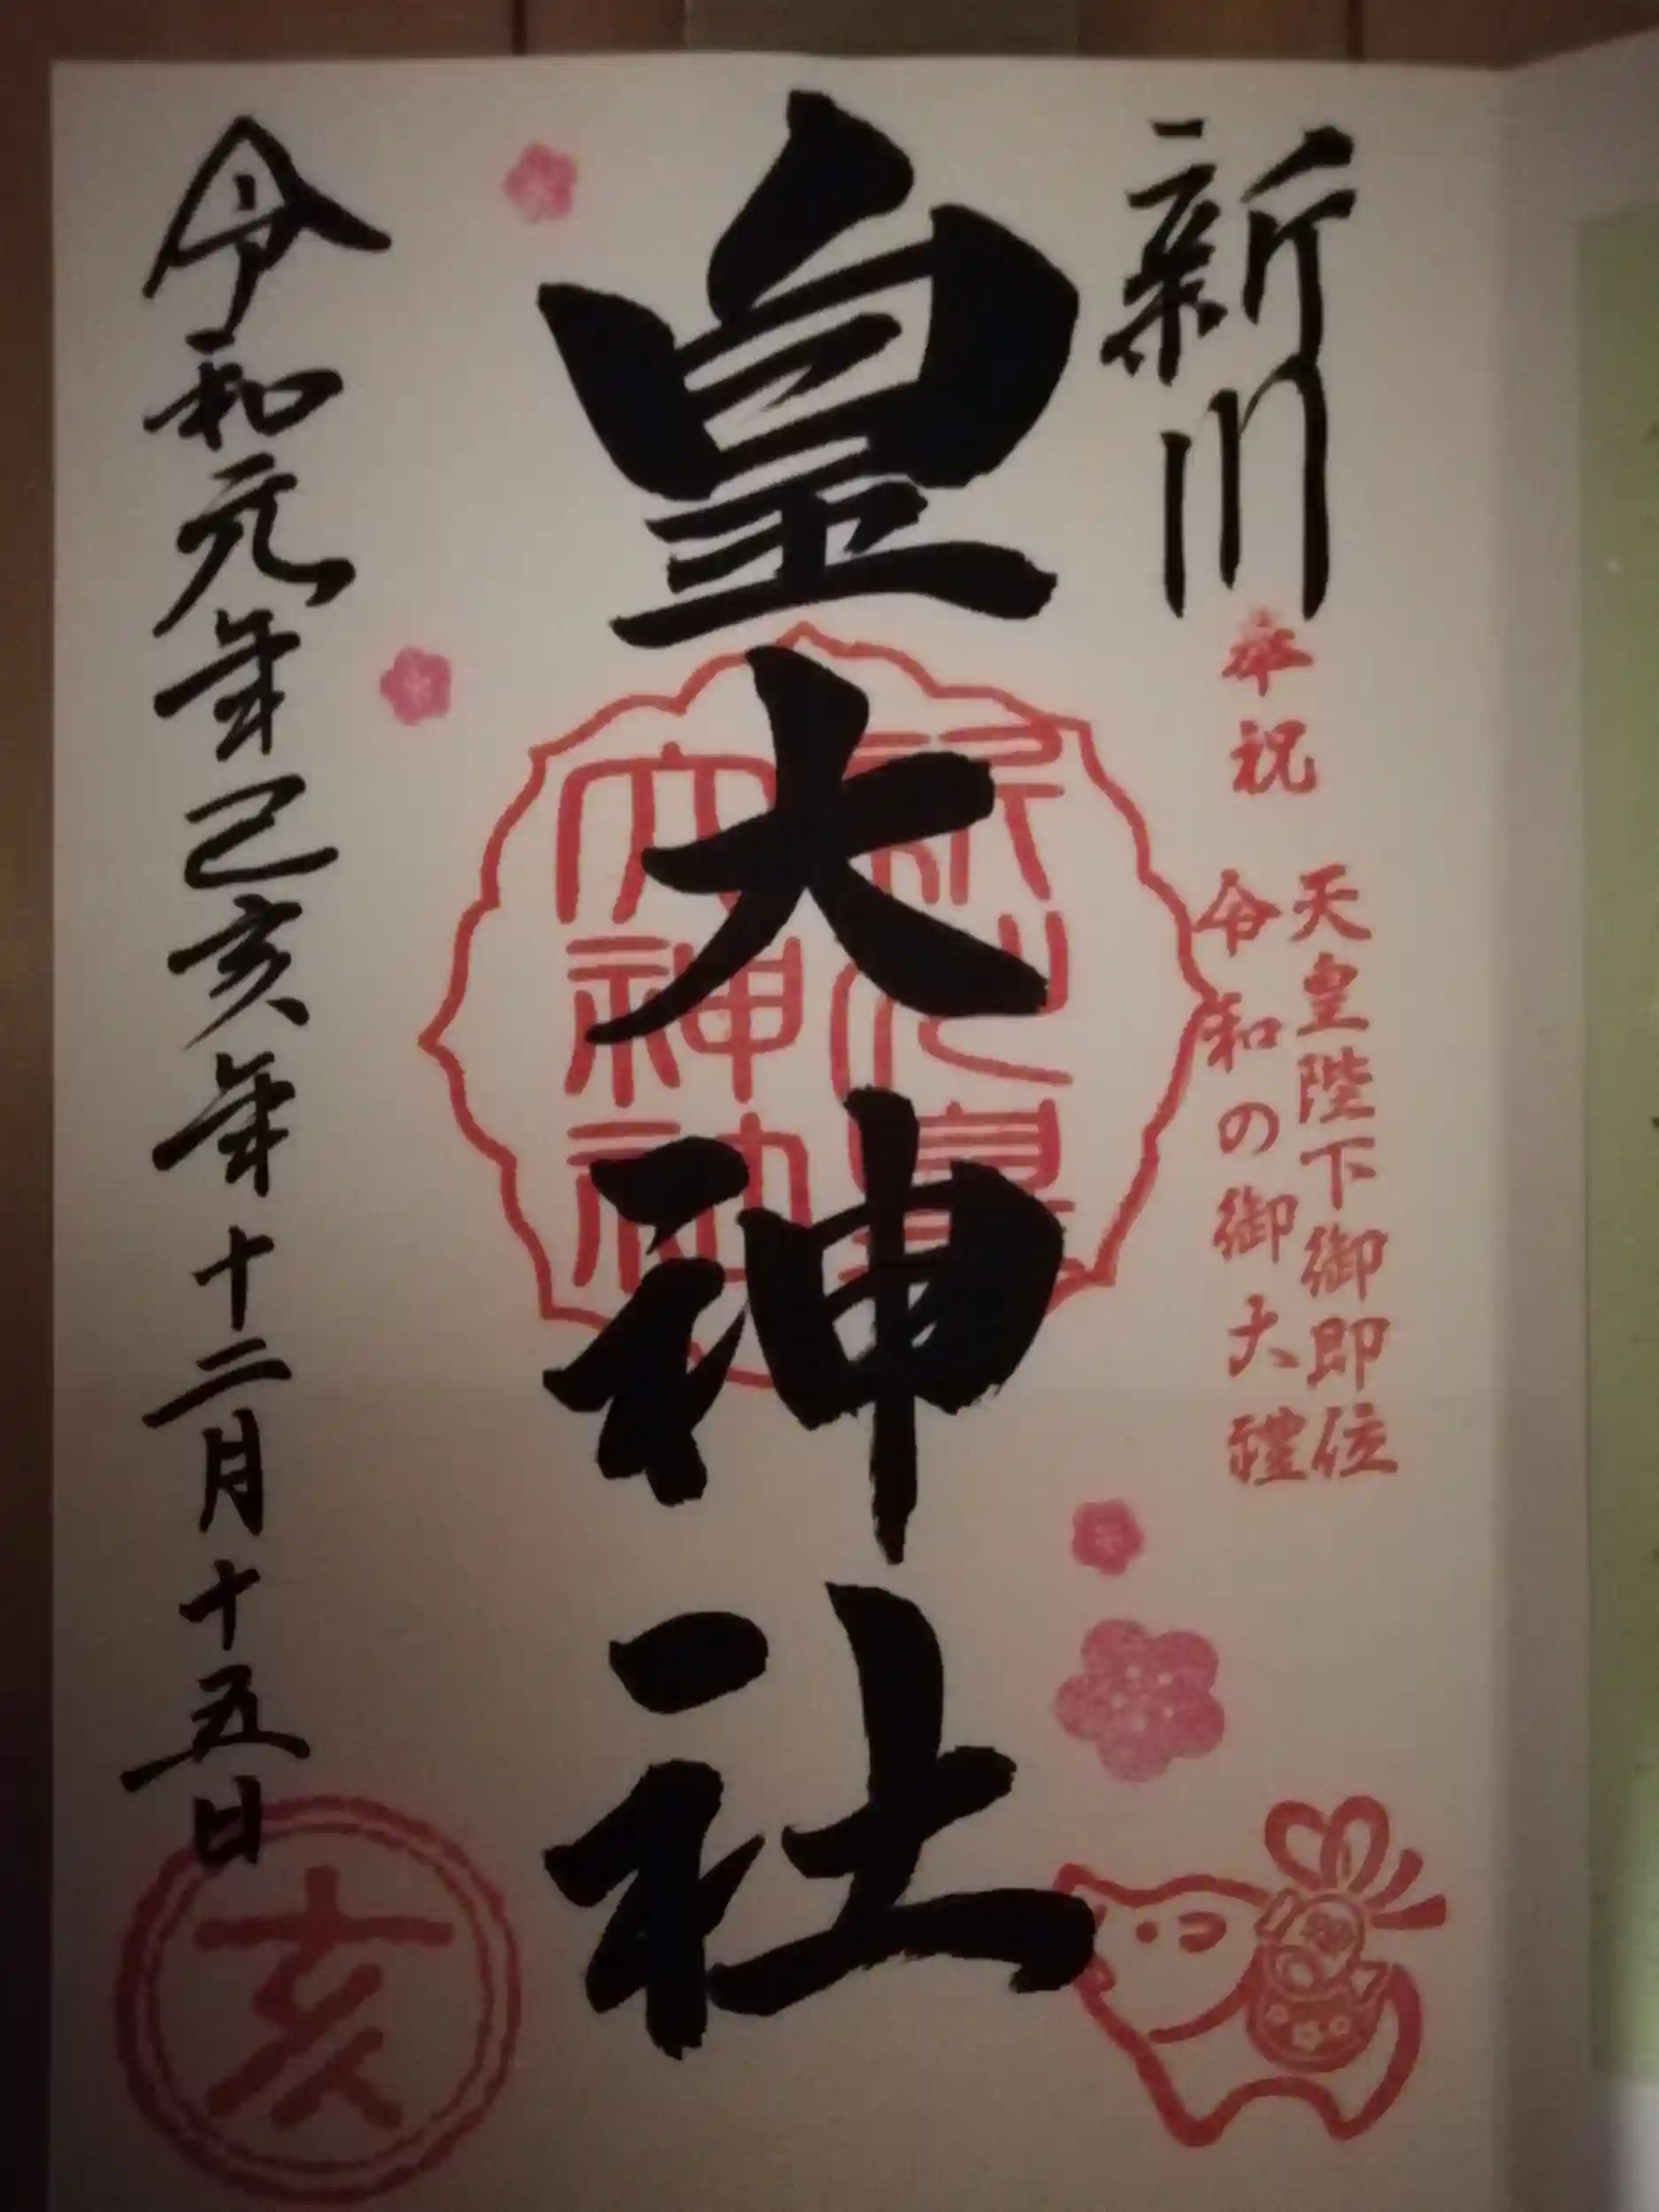 新川
奉祝
天皇陛下御即位
令和の御大禮
皇大神社
新川皇
大神社
令和元年己亥年十二月十五日
亥